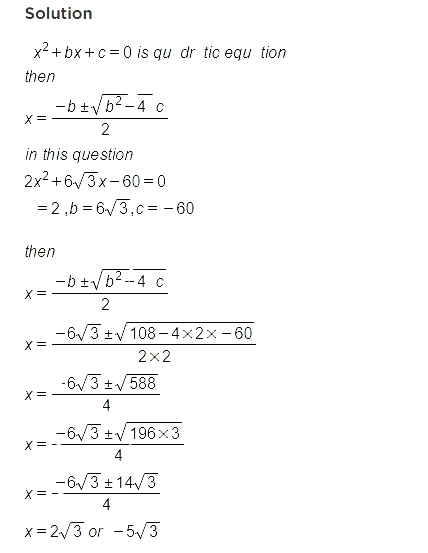 Solution
x² + bx + c = 0 is qu dr tic equ tion
then
x = (-b ± √(b² - 4 c)) / 2
in this question
2x² + 6√3x - 60 = 0
= 2 , b = 6√3, c = - 60
then
x = (-b ± √(b² -- 4 c)) / 2
x = (-6√3 ± √(108 - 4×2× - 60)) / (2×2)
x = (-6√3 ± √588) / 4
x = -(-6√3 ± √(196×3)) / 4
x = -(-6√3 ± 14√3) / 4
x = 2√3 or -5√3